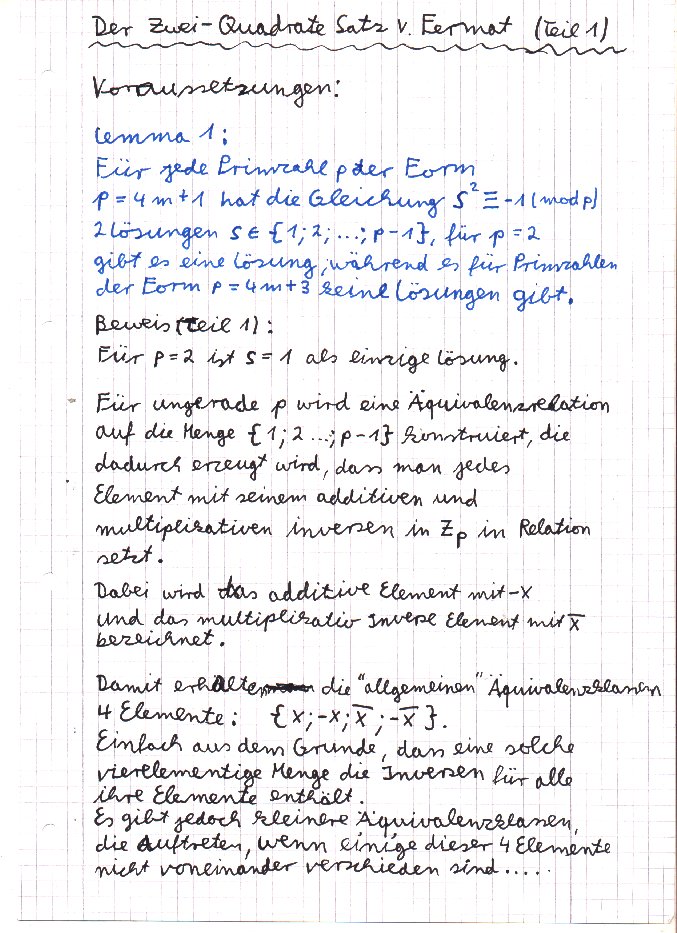 Der Zwei-Quadrate Satz v. Fermat (Teil 1)
Voraussetzungen:
Lemma 1:
Für jede Primzahl p der Form
p = 4m+1 hat die Gleichung S² ≡ -1 (mod p)
2 Lösungen S ∈ {1; 2; ...; p-1}, für p = 2
gibt es eine Lösung, während es für Primzahlen
der Form p = 4m+3 keine Lösungen gibt.
Beweis (Teil 1):
Für p=2 ist S=1 als einzige Lösung.
Für ungerade p wird eine Äquivalenzrelation
auf die Menge {1; 2 ...; p-1} konstruiert, die
dadurch erzeugt wird, dass man jedes
Element mit seinem additiven und
multiplikativen inversen in Zₚ in Relation
setzt.
Dabei wird das additive Element mit -x
und das multiplikativ Inverse Element mit x̅
bezeichnet.
Damit erhalten die "allgemeinen" Äquivalenzklassen
4 Elemente: {x; -x; x̅; -x̅}.
Einfach aus dem Grunde, dass eine solche
vierelementige Menge die Inversen für alle
ihre Elemente enthält.
Es gibt jedoch kleinere Äquivalenzklassen,
die Auftreten, wenn einige dieser 4 Elemente
nicht voneinander verschieden sind.....